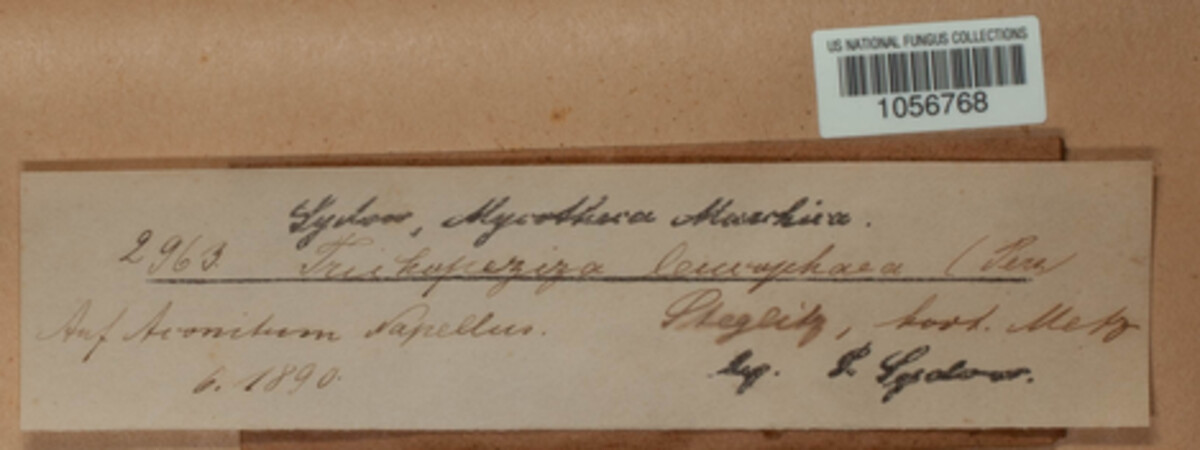 US NATIONAL FUNGUS COLLECTIONS
1056768
Sydow, Mycotheca Marchica.
2963. Trichopeziza leucophaea (Pers
Auf Aconitum Napellus. Steglitz, hort. Metz
6. 1890. leg. P. Sydow.